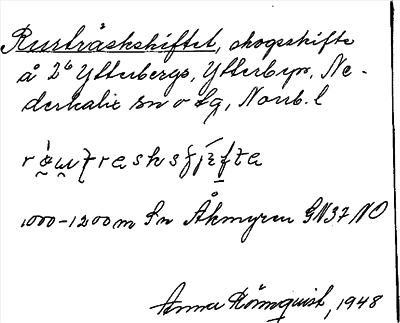 Rurträskskiftet, skogsskifte
å 2⁶ Ytterbergs, Ytterbyn, Ne-
derkalix sn o Lg, Norrb. l
1000-1200 m Sn Åkmyren GN37 NO
Anna Rönnquist, 1948